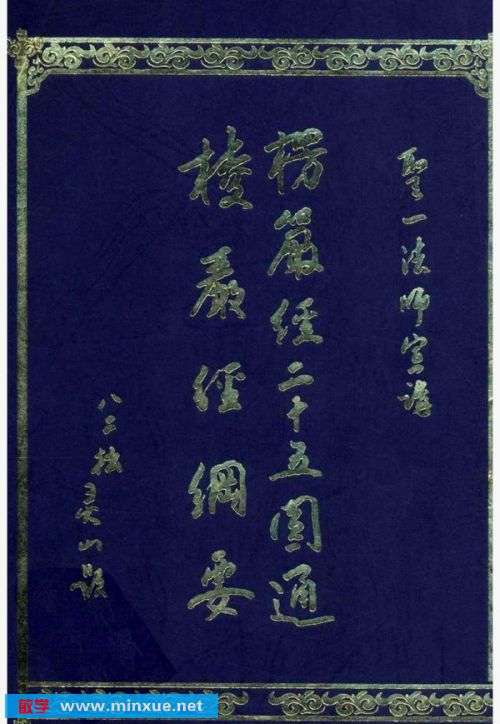 聖一法師宣講
楞嚴經二十五圓通
棱嚴經綱要
八二灵山題
敏学 www.minxue.net